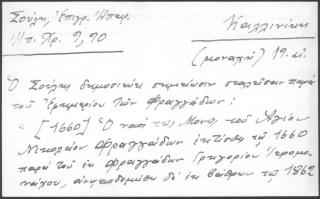 Σούλη, Ἐπιγρ. Ἠπείρ.
Ἠπ. Χρ. 9, 90
Καλλινίκη
(μοναχή) 19. αἰ.
Ὁ Σούλης δημοσιεύει σημείωσιν σταλεῖσαν παρὰ
τοῦ ἐφημερίου τῶν Φραγγάδων:
"[1660] Ὁ ναὸς τῆς Μονῆς τοῦ Ἁγίου
Νικολάου Φραγγάδων ἐκτίσθη τῷ 1660
παρὰ τοῦ ἐκ Φραγγάδων Γρηγορίου Ἱερομο-
νάχου, ἀνῳκοδομήθη δὲ ἐκ βάθρων τῷ 1862